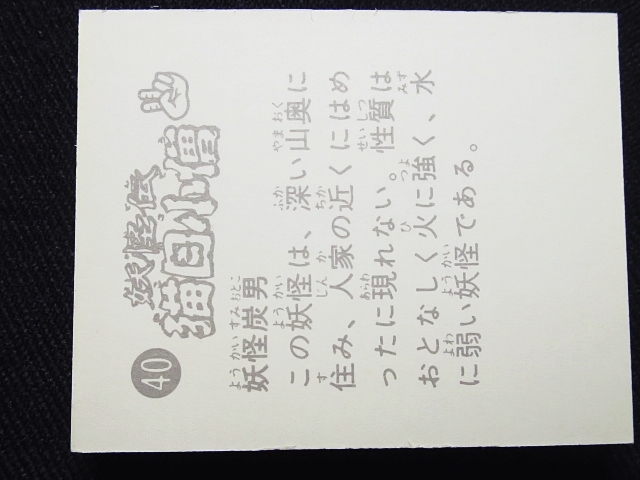 40
妖怪伝
猫目小僧
妖怪炭男
この妖怪は、深い山奥に
住み、人家の近くにはめ
ったに現れない。性質は
おとなしく火に強く、水
に弱い妖怪である。